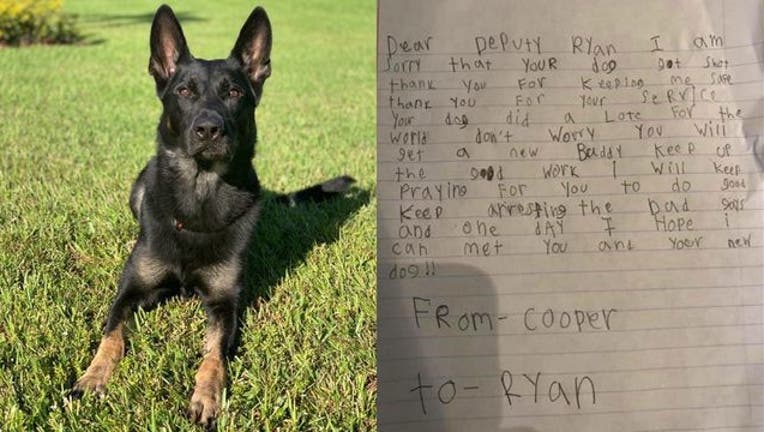 Dear Deputy Ryan I am
sorry that your dog got shot
thank you for keeping me safe
thank you for your service
your dog did a Lote for the
world don't worry you will
get a new Buddy keep up
the good work i will keep
praying for you to do good
keep arresting the bad guys
and one day I Hope i
can met you and your new
dog!!
From- cooper
to- Ryan